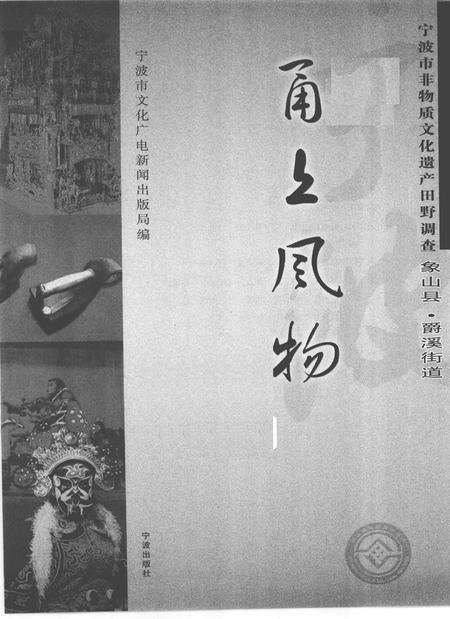 宁波市非物质文化遗产田野调查
象山县·爵溪街道
甬上风物
宁波市文化广电新闻出版局编
宁波出版社